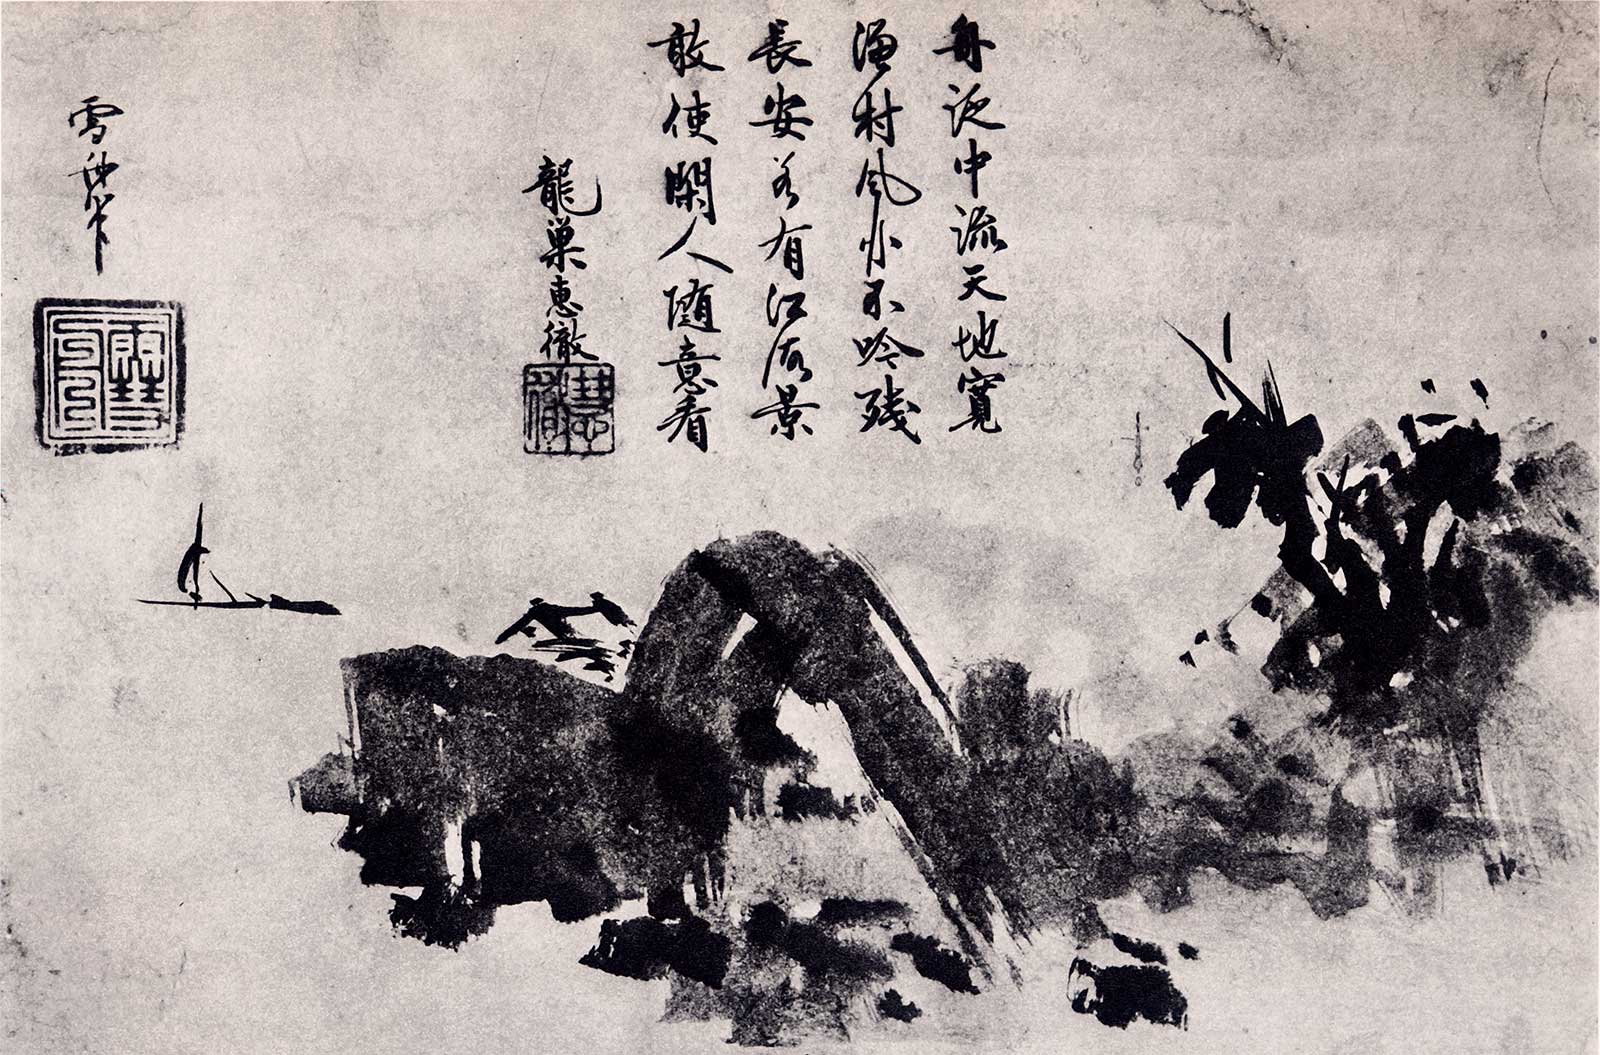 舟泛中流天地寛
漁村風小不吟残
長安若有江景
敢使閑人随意看
龍巣恵徹
雪舟筆